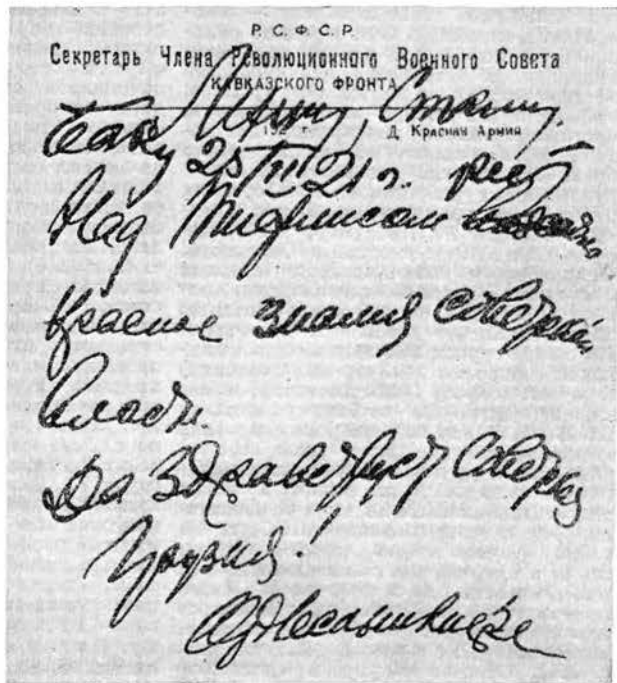 Р. С. Ф. С. Р.
Секретарь Члена Революционного Военного Совета
КАВКАЗСКОГО ФРОНТА
Ленину, Сталину.
192 г. Д. Красная Армия
Баку 25/II 21 г. реет
Над Тифлисом
Красное знамя советской
власти.
Да здравствует Советская
Грузия!
Орджоникидзе